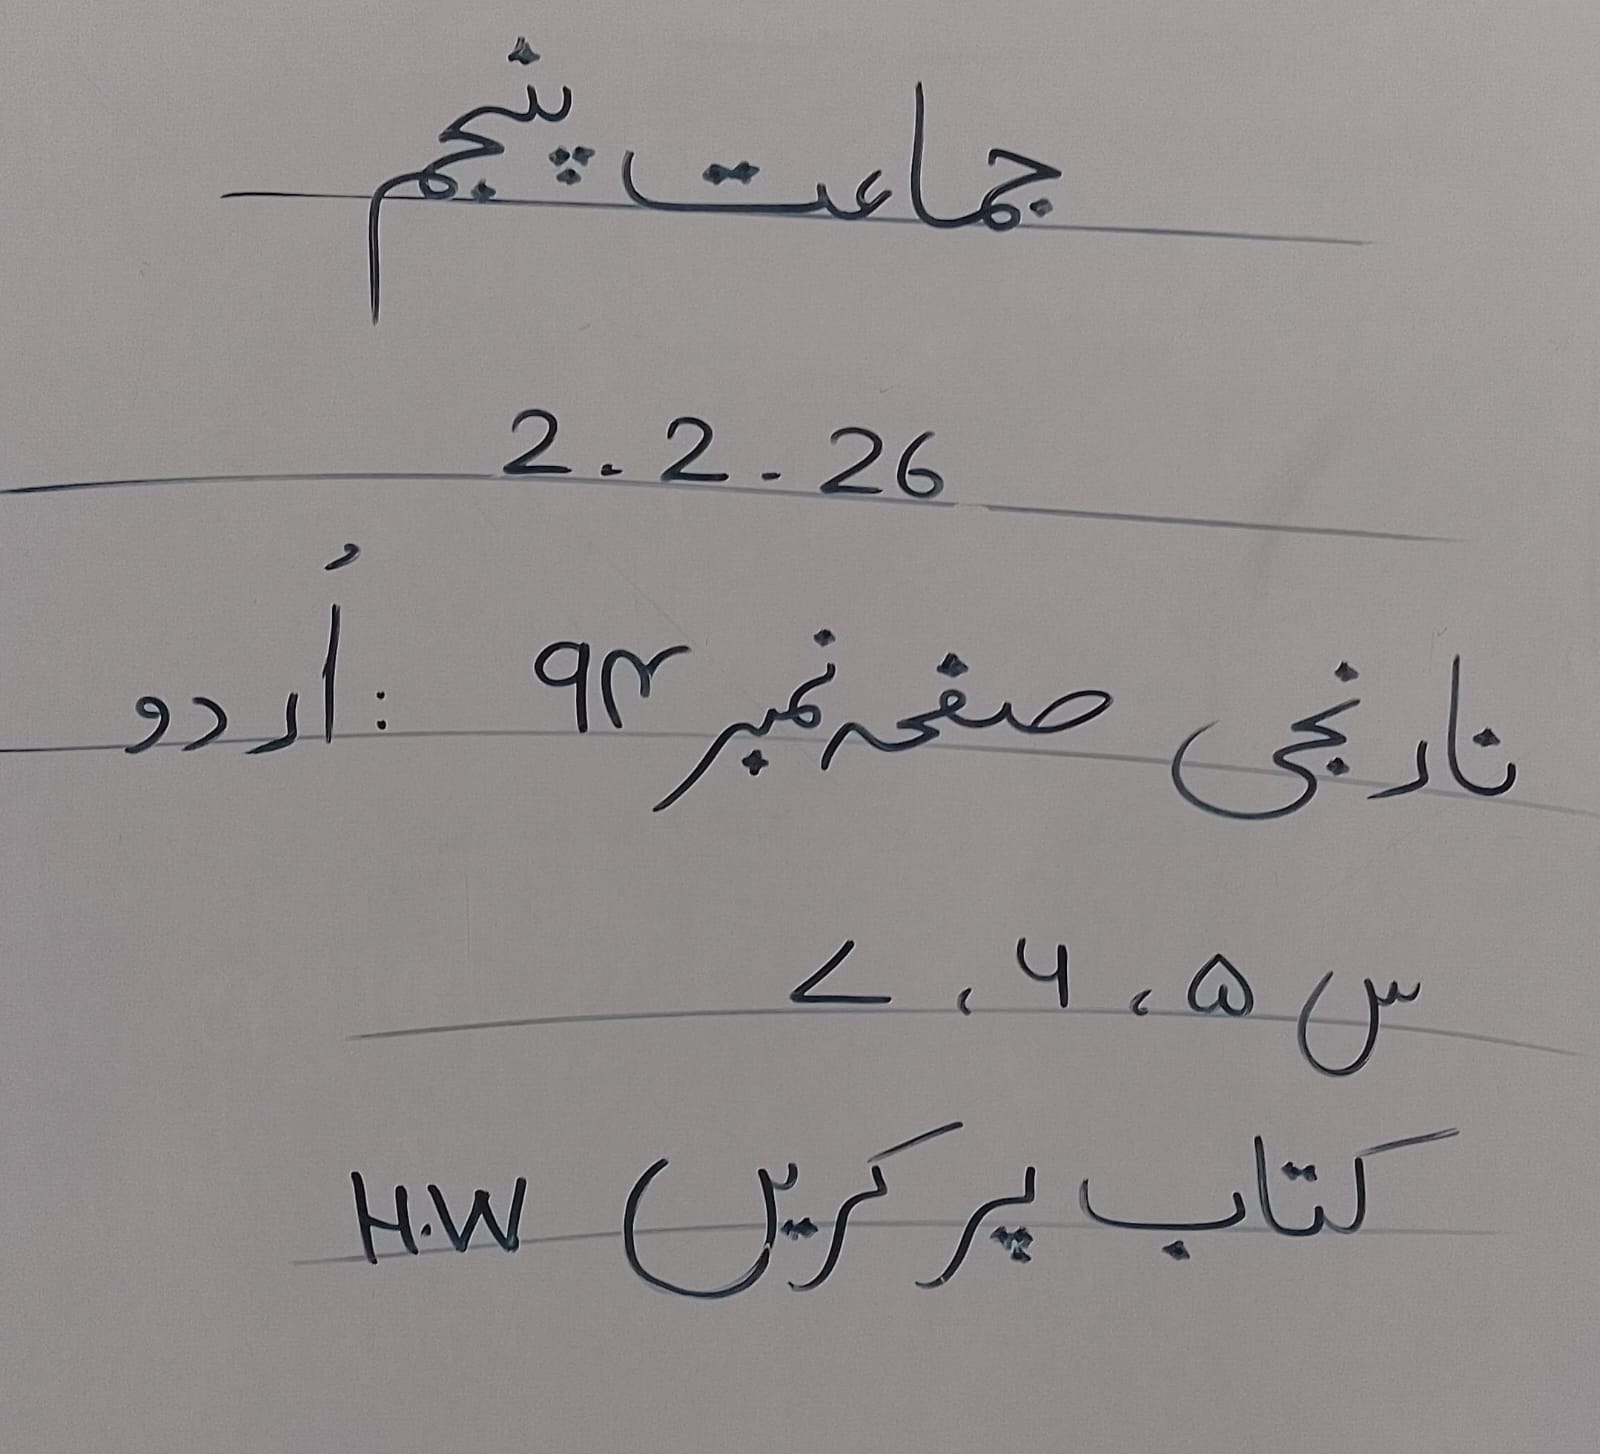 جماعت پنجم
2.2.26
اُردو: نارنجی صفحہ نمبر ۹۳
س ۵، ۶، ۷
کتاب پر کریں H.W